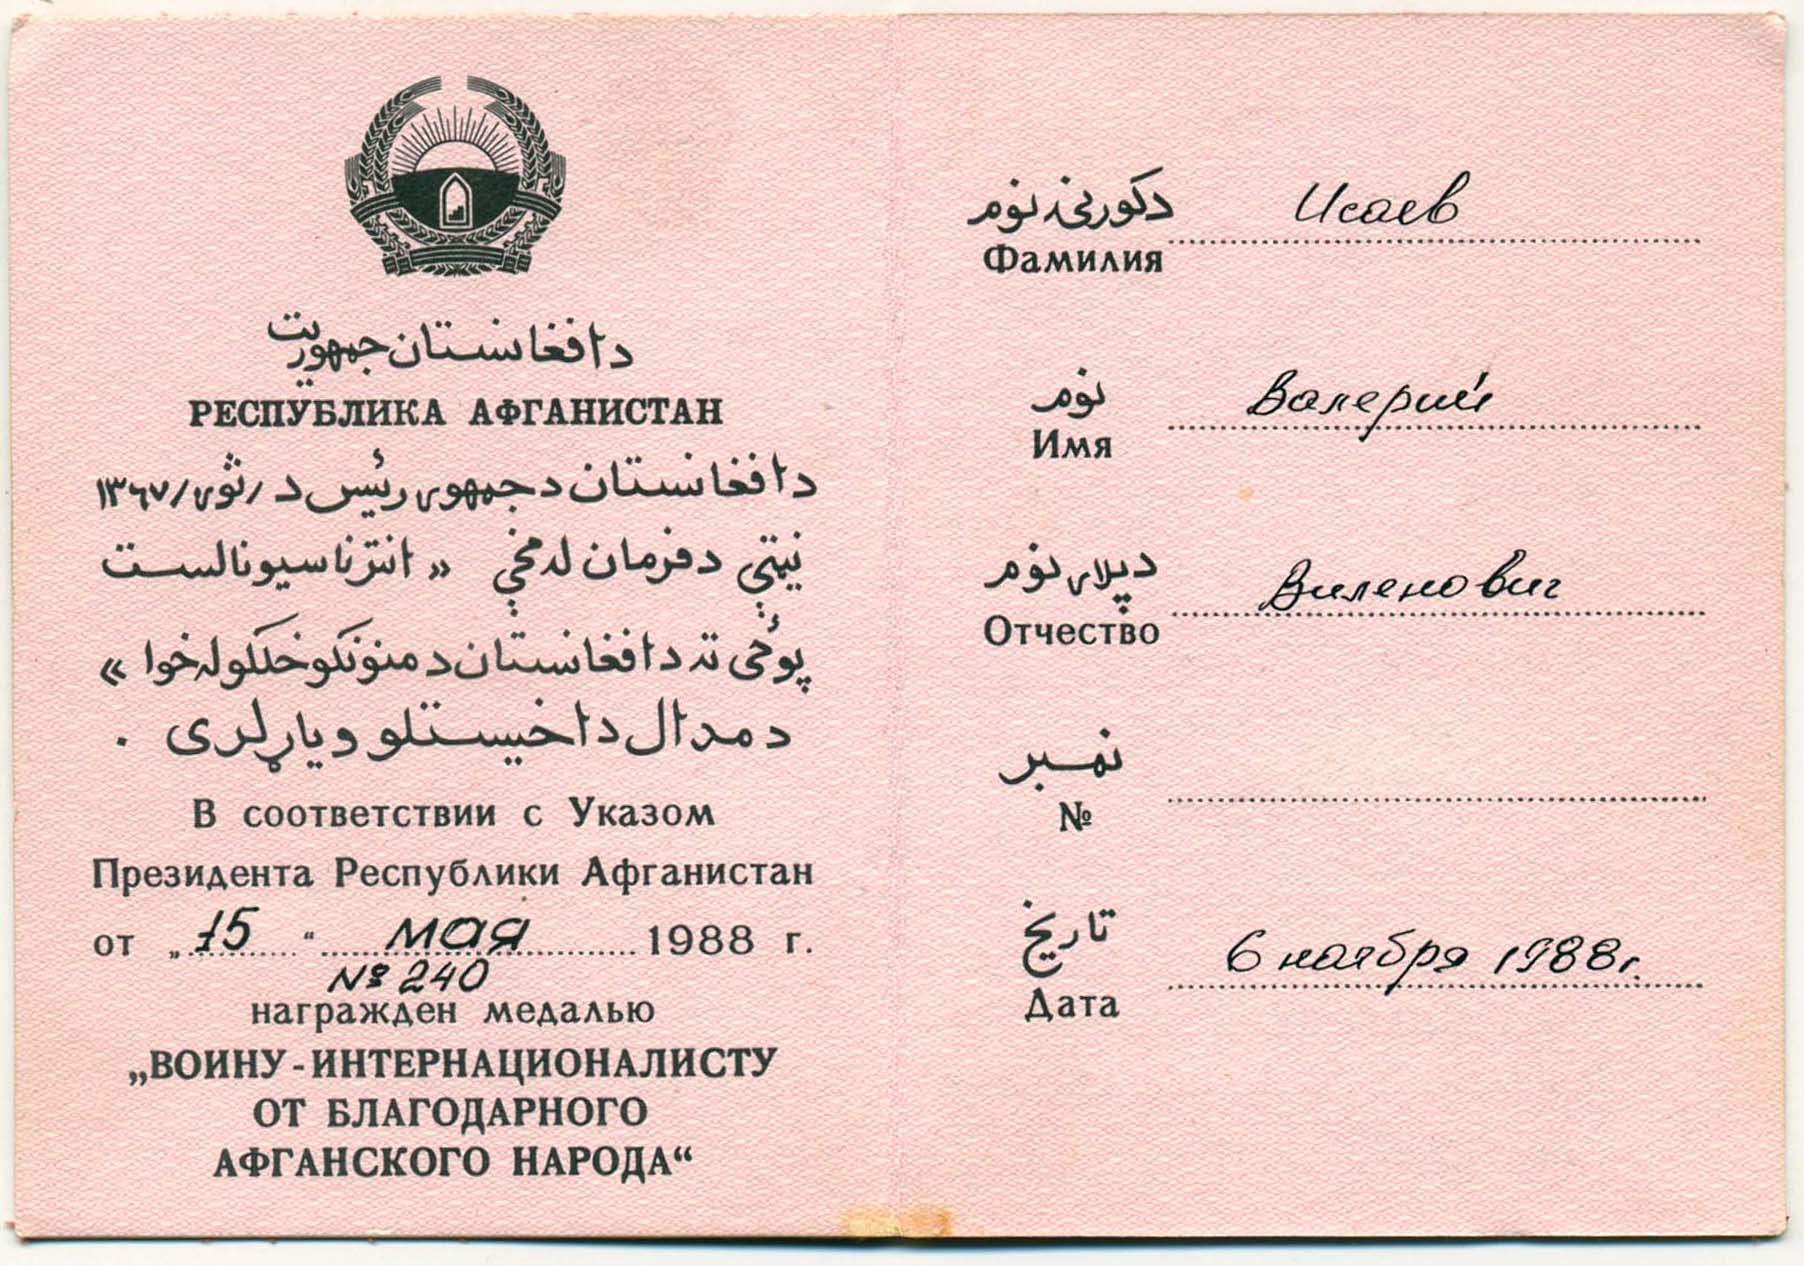 د افغانستان جمهوریت
РЕСПУБЛИКА АФГАНИСТАН
د افغانستان د جمهوری رئیس د / ثوری / ۱۳۶۷
نیټې د فرمان له مخې « انترناسیونالست
پوځی ته د افغانستان د منونکو خلکو له خوا »
د مدال د اخیستلو ویاړ لری .
В соответствии с Указом
Президента Республики Афганистан
от „15“ мая 1988 г.
№ 240
награжден медалью
„ВОИНУ-ИНТЕРНАЦИОНАЛИСТУ
ОТ БЛАГОДАРНОГО
АФГАНСКОГО НАРОДА“
د کورنۍ نوم
Фамилия Исаев
نوم
Имя Валерий
د پلار نوم
Отчество Виленович
نمبر
№
تاریخ
Дата 6 ноября 1988 г.